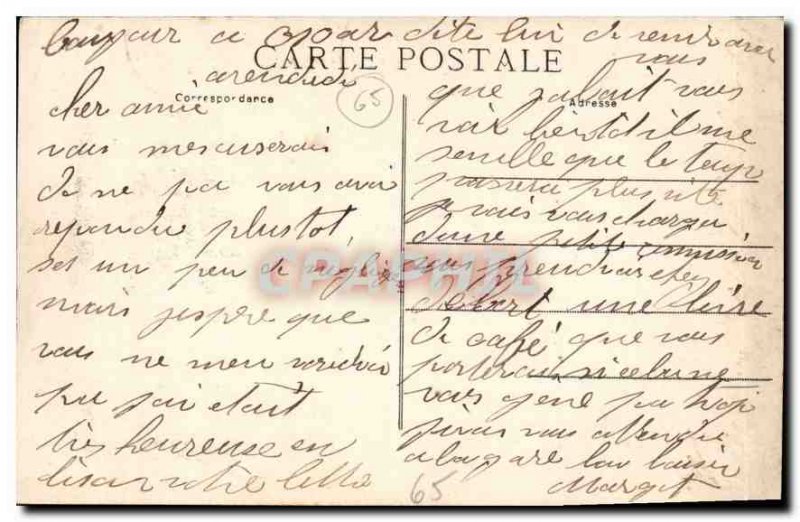 bonjour a Oscar dite lui de venir avec vous
CARTE POSTALE
arendidi
Correspondance
65
Adresse
cher amie
vous mescuserais
de ne pa vous avoir
repondu plustot,
set un peu de neglige
mais jespere que
vous ne men voudrais
pa jai etait
très heureuse en
lisan votre lettre
que jalait vous
voir bientot il me
semble que le temp
passera plus vite
je vais vous charger
dune petite commission
vous prendrai chez
debart une livre
de café que vous
porterai si cela ne
vous gene pa trop
jirai vous attendre
a la gare bon baiser
Margot
65
CPAPHIL